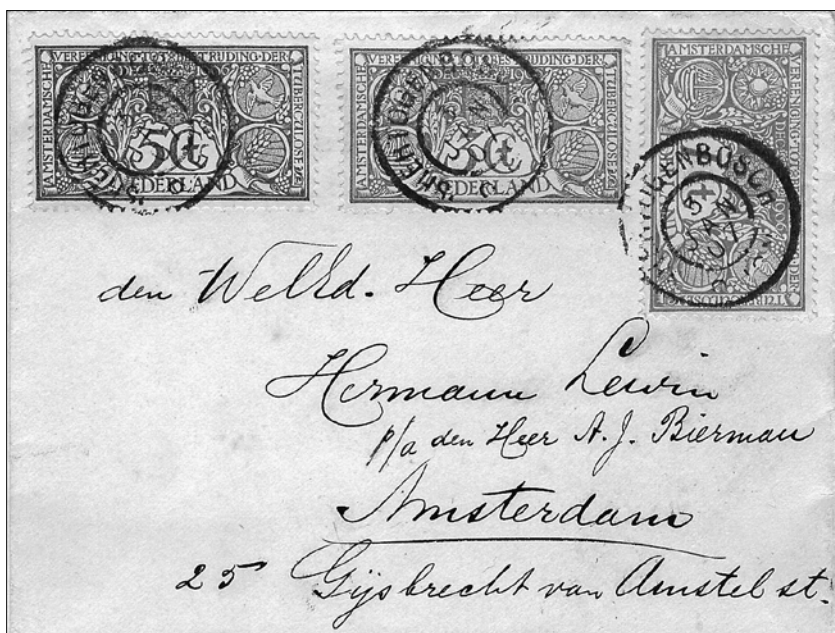 AMSTERDAMSCHE VEREENIGING TOT BESTRIJDING DER TUBERCULOSE
5Ct
NEDERLAND
AMSTERDAMSCHE VEREENIGING TOT BESTRIJDING DER TUBERCULOSE
5Ct
NEDERLAND
'SHERTOGENBOSCH
AMSTERDAMSCHE VEREENIGING TOT
DER TUBERCULOSE
'SHERTOGENBOSCH
3
JAN
07
den WelEd. Heer
Hermann Lewin
p/a den Heer A. J. Bierman
Amsterdam
25 Gijsbrecht van Amstel st.